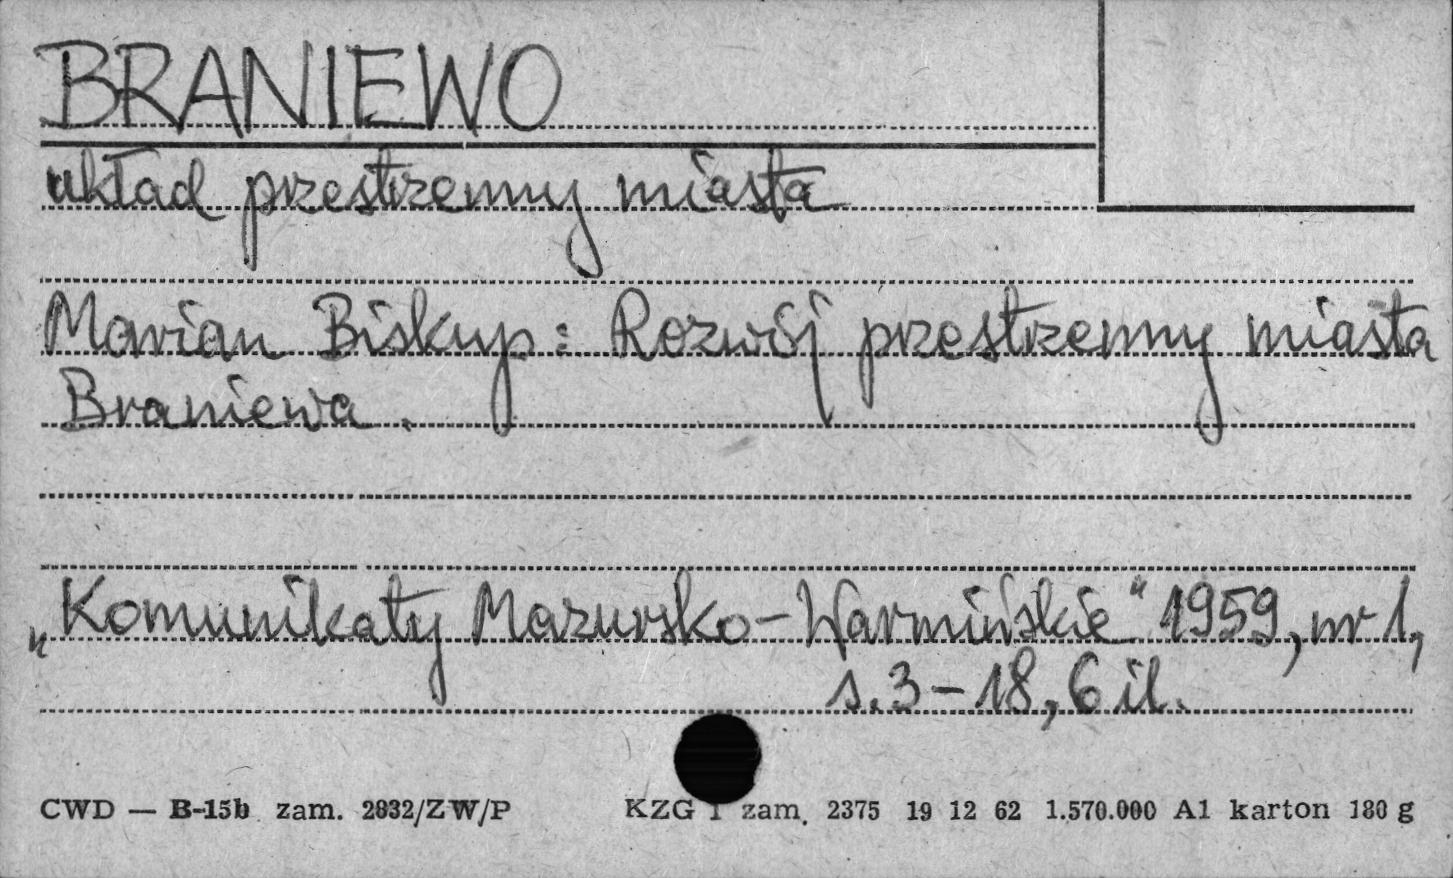 BRANIEWO
układ przestrzenny miasta
Marian Biskup: Rozwój przestrzenny miasta
Braniewa.
„Komunikaty Mazursko-Warmińskie" 1959, nr 1,
s. 3-18, 6 il.
CWD — B-15b zam. 2832/ZW/P KZG 1 zam. 2375 19 12 62 1.570.000 A1 karton 180 g